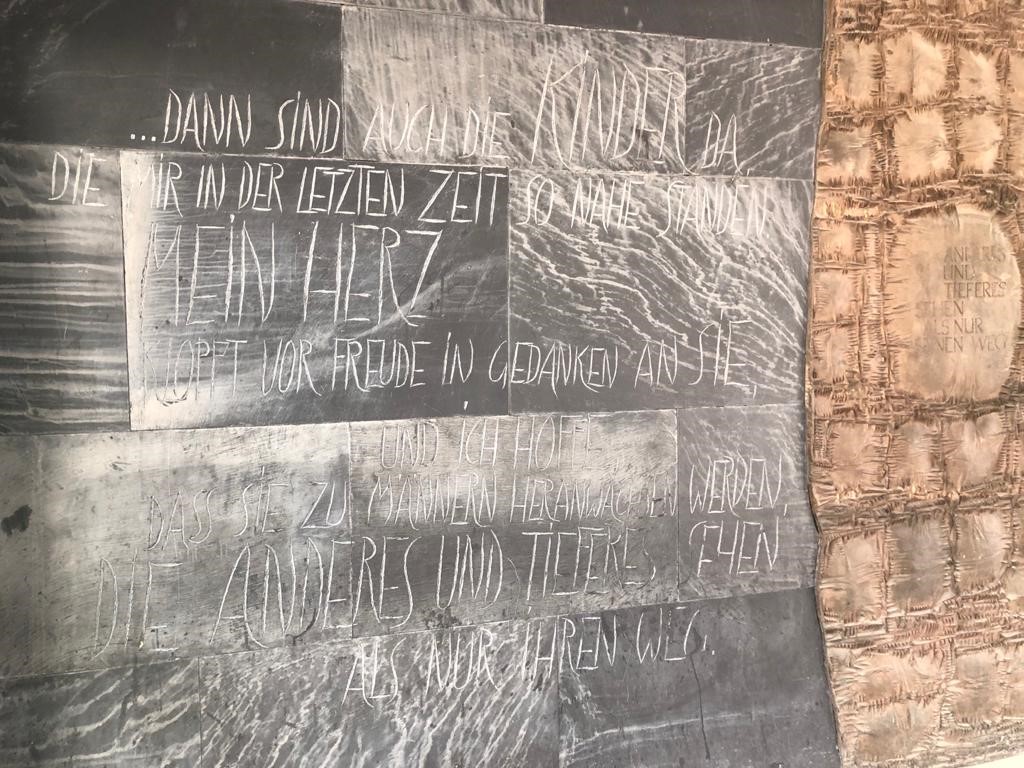 ...DANN SIND AUCH DIE KINDER DA
DIE MIR IN DER LETZTEN ZEIT SO NAHE STANDEN
MEIN HERZ
KLOPFT VOR FREUDE IN GEDANKEN AN SIE,
UND ICH HOFFE
DASS SIE ZU MÄNNERN HERANWACHSEN WERDEN,
DIE ANDERES UND TIEFERES SEHEN
ALS NUR IHREN WEG.
ANDERES
UND
TIEFERES
SEHEN
ALS NUR
IHREN WEG